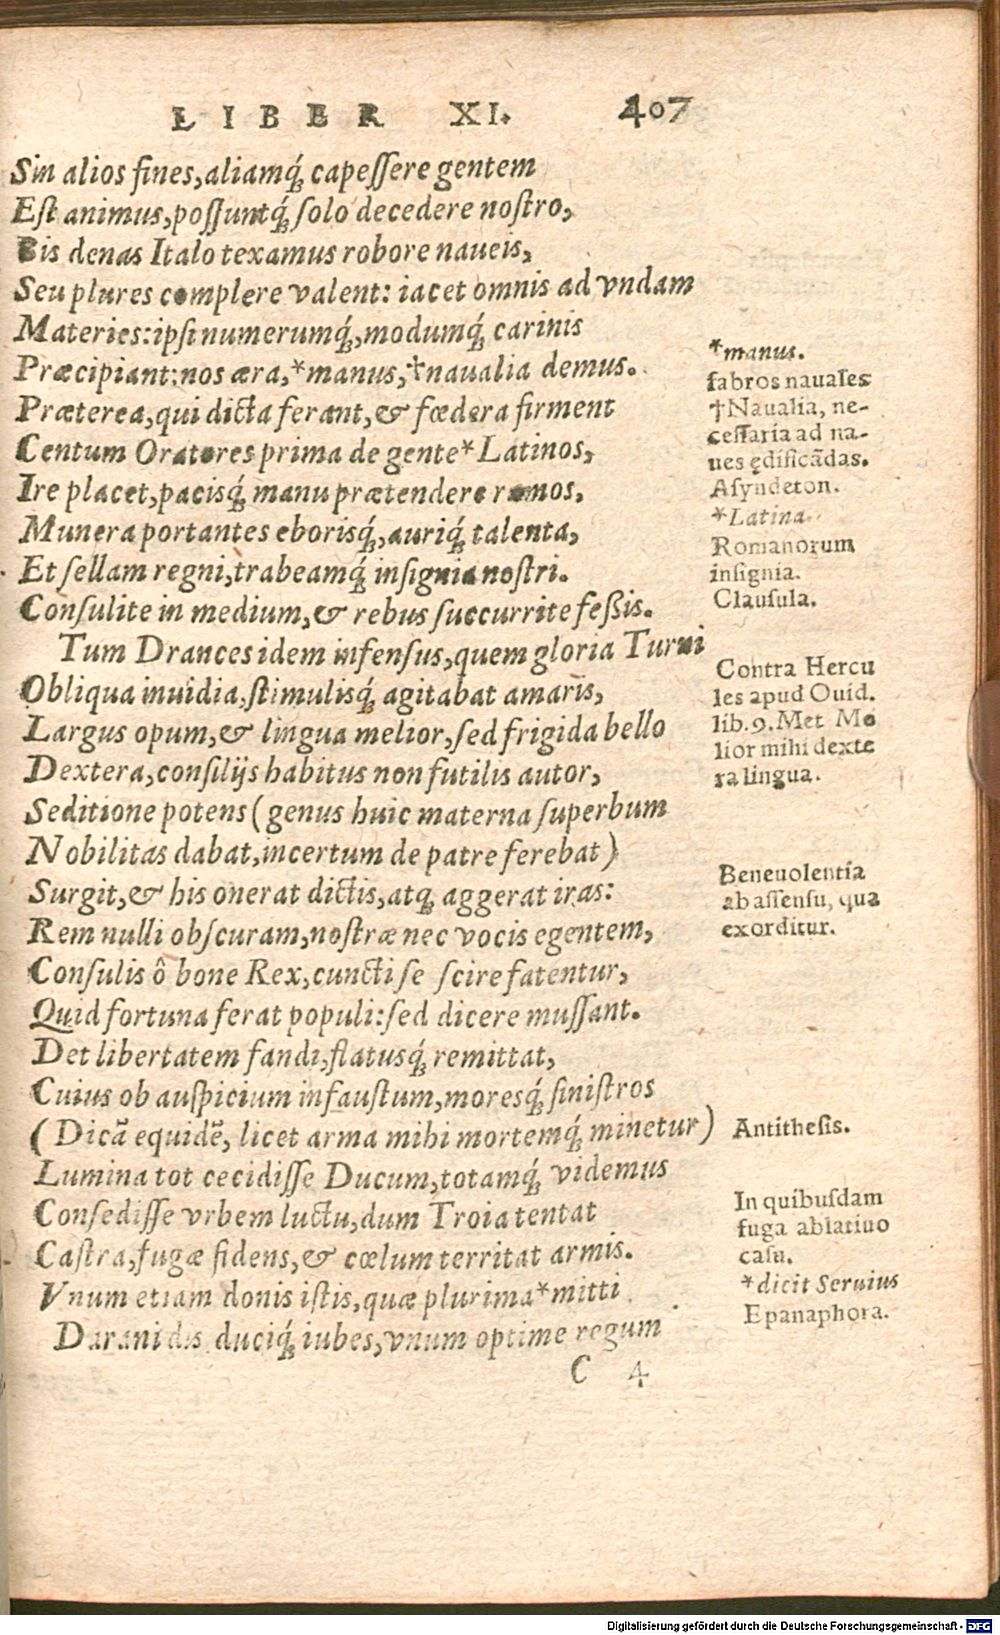 LIBER XI. 407
Sin alios fines, aliamq́; capeſſere gentem
Eſt animus, poſſuntq́; ſolo decedere noſtro,
Bis denas Italo texamus robore naueis,
Seu plures complere valent: iacet omnis ad vndam
Materies: ipſi numerumq́;, modumq́; carinis
Præcipiant: nos æra,*manus,†naualia demus.
Præterea, qui dicta ferant, & fœdera firment
Centum Oratores prima de gente*Latinos,
Ire placet, pacisq́; manu prætendere ramos,
Munera portantes eborisq́;, auriq́; talenta,
Et ſellam regni, trabeamq́; inſignia noſtri.
Conſulite in medium, & rebus ſuccurrite feßis.
Tum Drances idem infenſus, quem gloria Turni
Obliqua inuidia, ſtimulisq́; agitabat amaris,
Largus opum, & lingua melior, ſed frigida bello
Dextera, conſilijs habitus non futilis autor,
Seditione potens (genus huic materna ſuperbum
Nobilitas dabat, incertum de patre ferebat)
Surgit, & his onerat dictis, atq; aggerat iras:
Rem nulli obſcuram, noſtræ nec vocis egentem,
Conſulis ô bone Rex, cuncti ſe ſcire fatentur,
Quid fortuna ferat populi: ſed dicere muſſant.
Det libertatem fandi, flatusq́; remittat,
Cuius ob auſpicium infauſtum, moresq́; ſiniſtros
(Dicã equidẽ, licet arma mihi mortemq́; minetur)
Lumina tot cecidiſſe Ducum, totamq́; videmus
Conſediſſe vrbem luctu, dum Troia tentat
Caſtra, fugæ fidens, & cœlum territat armis.
Vnum etiam donis iſtis, quæ plurima*mitti
Daranidis duciq́; iubes, vnum optime regum
C 4
*manus.
fabros nauales
†Naualia, ne-
ceſſaria ad na-
ues ędificãdas.
Aſyndeton.
*Latina
Romanorum
inſignia.
Clauſula.
Contra Hercu
les apud Ouid.
lib.9. Met Me
lior mihi dexte
ra lingua.
Beneuolentia
ab aſſenſu, qua
exorditur.
Antitheſis.
In quibuſdam
fuga ablatiuo
caſu.
*dicit Seruius
Epanaphora.
Digitalisierung gefördert durch die Deutsche Forschungsgemeinschaft - DFG